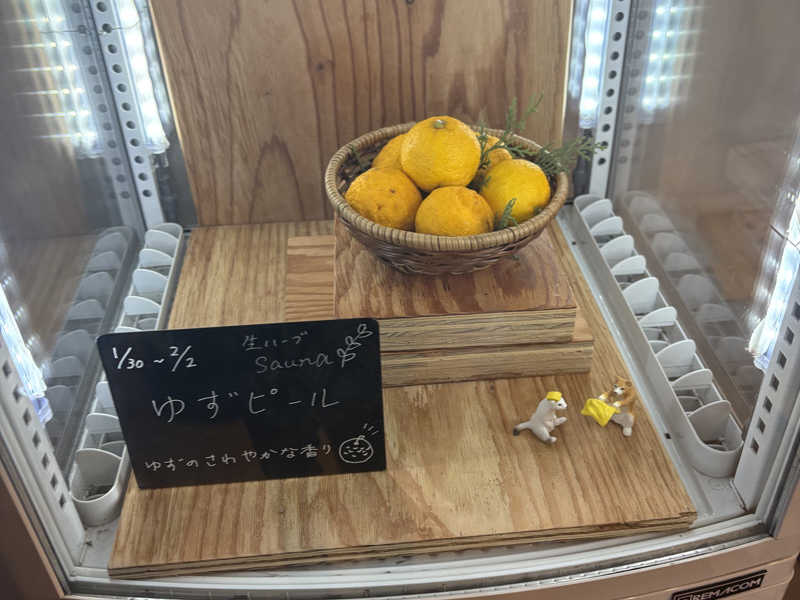 1/30 ~ 2/2
生ハーブ
Sauna
ゆずピール
ゆずのさわやかな香り
REMACOM